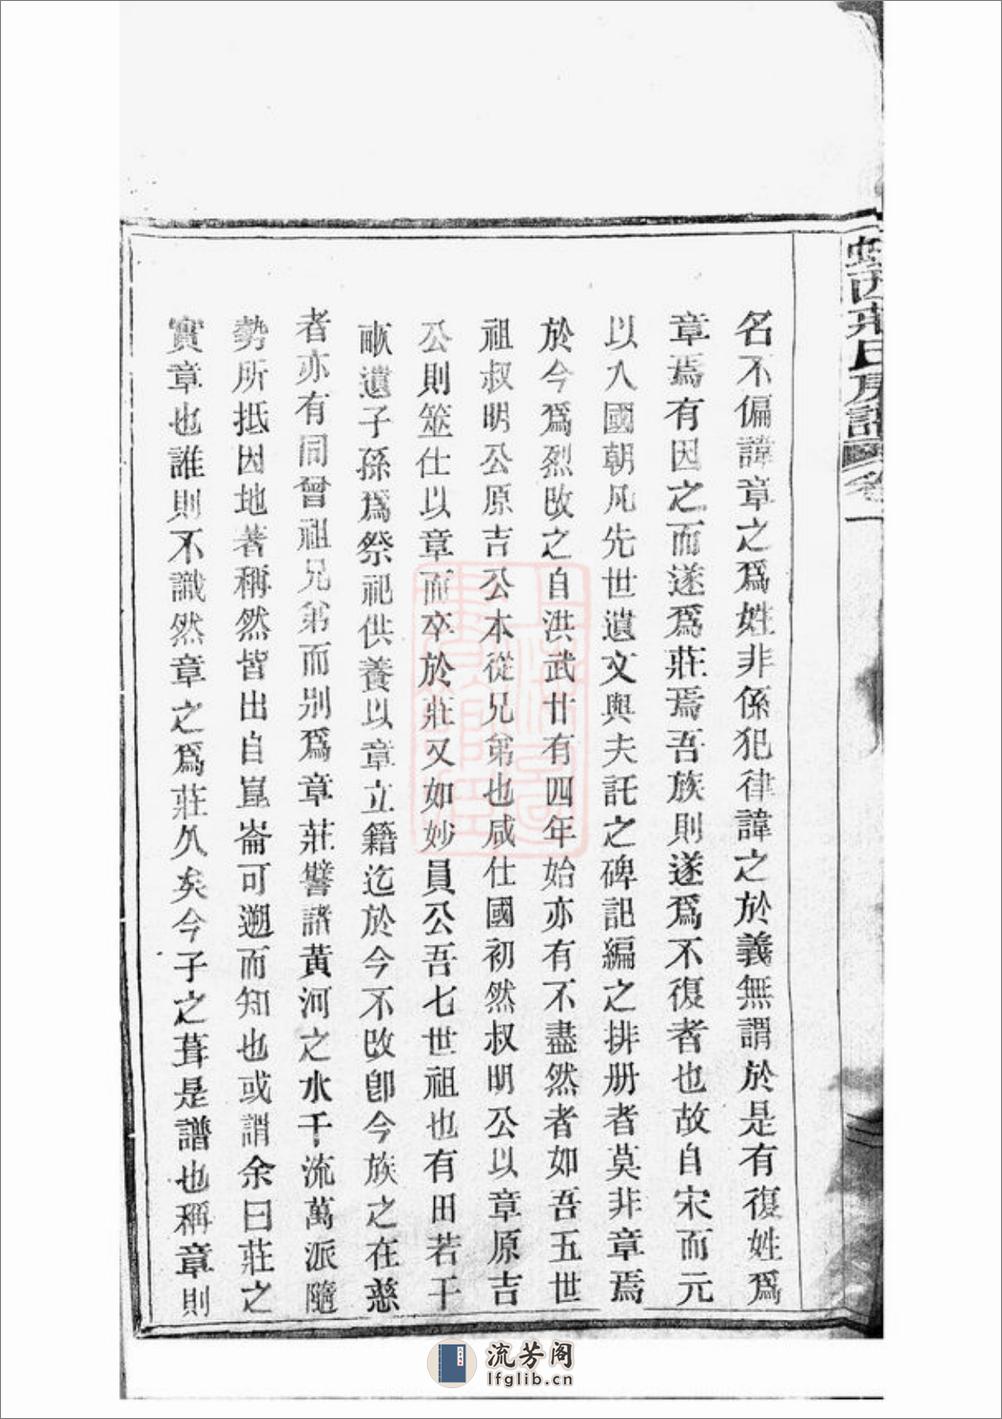 名不偏諱章之爲姓非係犯律諱之於義無謂於是有復姓爲
章焉有因之而遂爲莊焉吾族則遂爲不復者也故自宋而元
以入國朝凡先世遺文與夫託之碑記編之排册者莫非章焉
於今爲烈改之自洪武廿有四年始亦有不盡然者如吾五世
祖叔明公原吉公本從兄弟也咸仕國初然叔明公以章原吉
公則筮仕以章而卒於莊又如妙員公吾七世祖也有田若干
畝遺子孫爲祭祀供養以章立籍迄於今不改卽今族之在慈
者亦有同曾祖兄弟而别爲章莊譬諸黃河之水千流萬派隨
勢所抵因地著稱然皆出自崑崙可遡而知也或謂余曰莊之
實章也誰則不識然章之爲莊久矣今子之葺是譜也稱章則
莊氏房譜 卷一
流芳阁
lfglib.cn